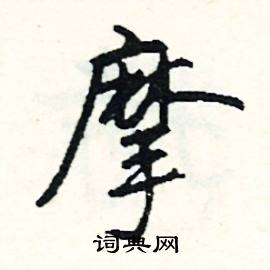 摩
词典网